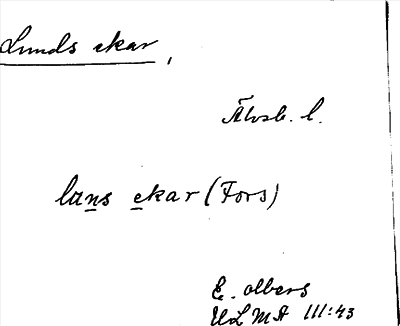 Lunds ekar,
Älvsb. l.
luns ekar (Fors)
E. Olbers
ULMA 111:43